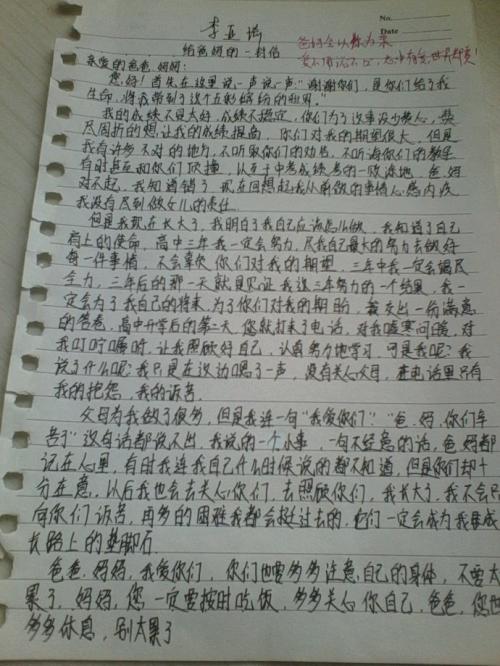 李亚瑞
No.
Date
给爸妈的一封信
爸妈会以你为荣
亲爱的爸爸、妈妈:
您好!首先在这里说一声说一声:“谢谢你们,是你们给了我
生命,将我带到了这个五彩缤纷的世界。”
我的成绩不是太好,成绩不稳定,你们为了这事没少操心,想
尽周折的想让我的成绩提高,你们对我的期望很大,但是
我有许多不对的地方,不听取你们的劝告,不听诲你们的教导
有时甚至和你们顶撞,以至于中考成绩考的一败涂地,爸妈
对不起,我知道错了,现在回想起我从前做的事情心感内疚
我没有尽到做女儿的责任
但是我现在长大了,我明白了我自己应该怎么做,我知道了自己
肩上的使命,高中三年我一定会努力,尽我自己最大的努力去做好
每一件事情,不会辜负你们对我的期望,三年中我一定会竭尽
全力,三年后的那一天就是见证我这三年努力的一个结果,我一
定会为了我自己的将来,为了你们对我的期盼,我交出一份满意
的答卷,高中开学后的第二天,您就打来了电话,对我嘘寒问暖,对
我叮咛嘱咐,让我照顾好自己,认真努力地学习,可是我呢?我
说了什么呢?我只是在这边嗯了一声,没有关心父母,在电话里只有
我的抱怨,我的诉苦,
父母为我做了很多,但是我连一句“我爱你们”“爸、妈,你们辛
苦了”这句话都说不出,我说的一个小事,一句不经意的话,爸妈都
记在心里,有时我连我自己什么时候说的都不知道,但是你们却十
分在意,以后我也会去关心你们,去照顾你们,我长大了,我不会只
向你们诉苦,再多的困难我都会挺过去的,它们一定会成为我要成
长路上的垫脚石
爸爸、妈妈,我爱你们,你们也要多多注意自己的身体,不要太
累了,妈妈,您一定要按时吃饭,多多关心你自己,爸爸,您也
多多休息,别太累了